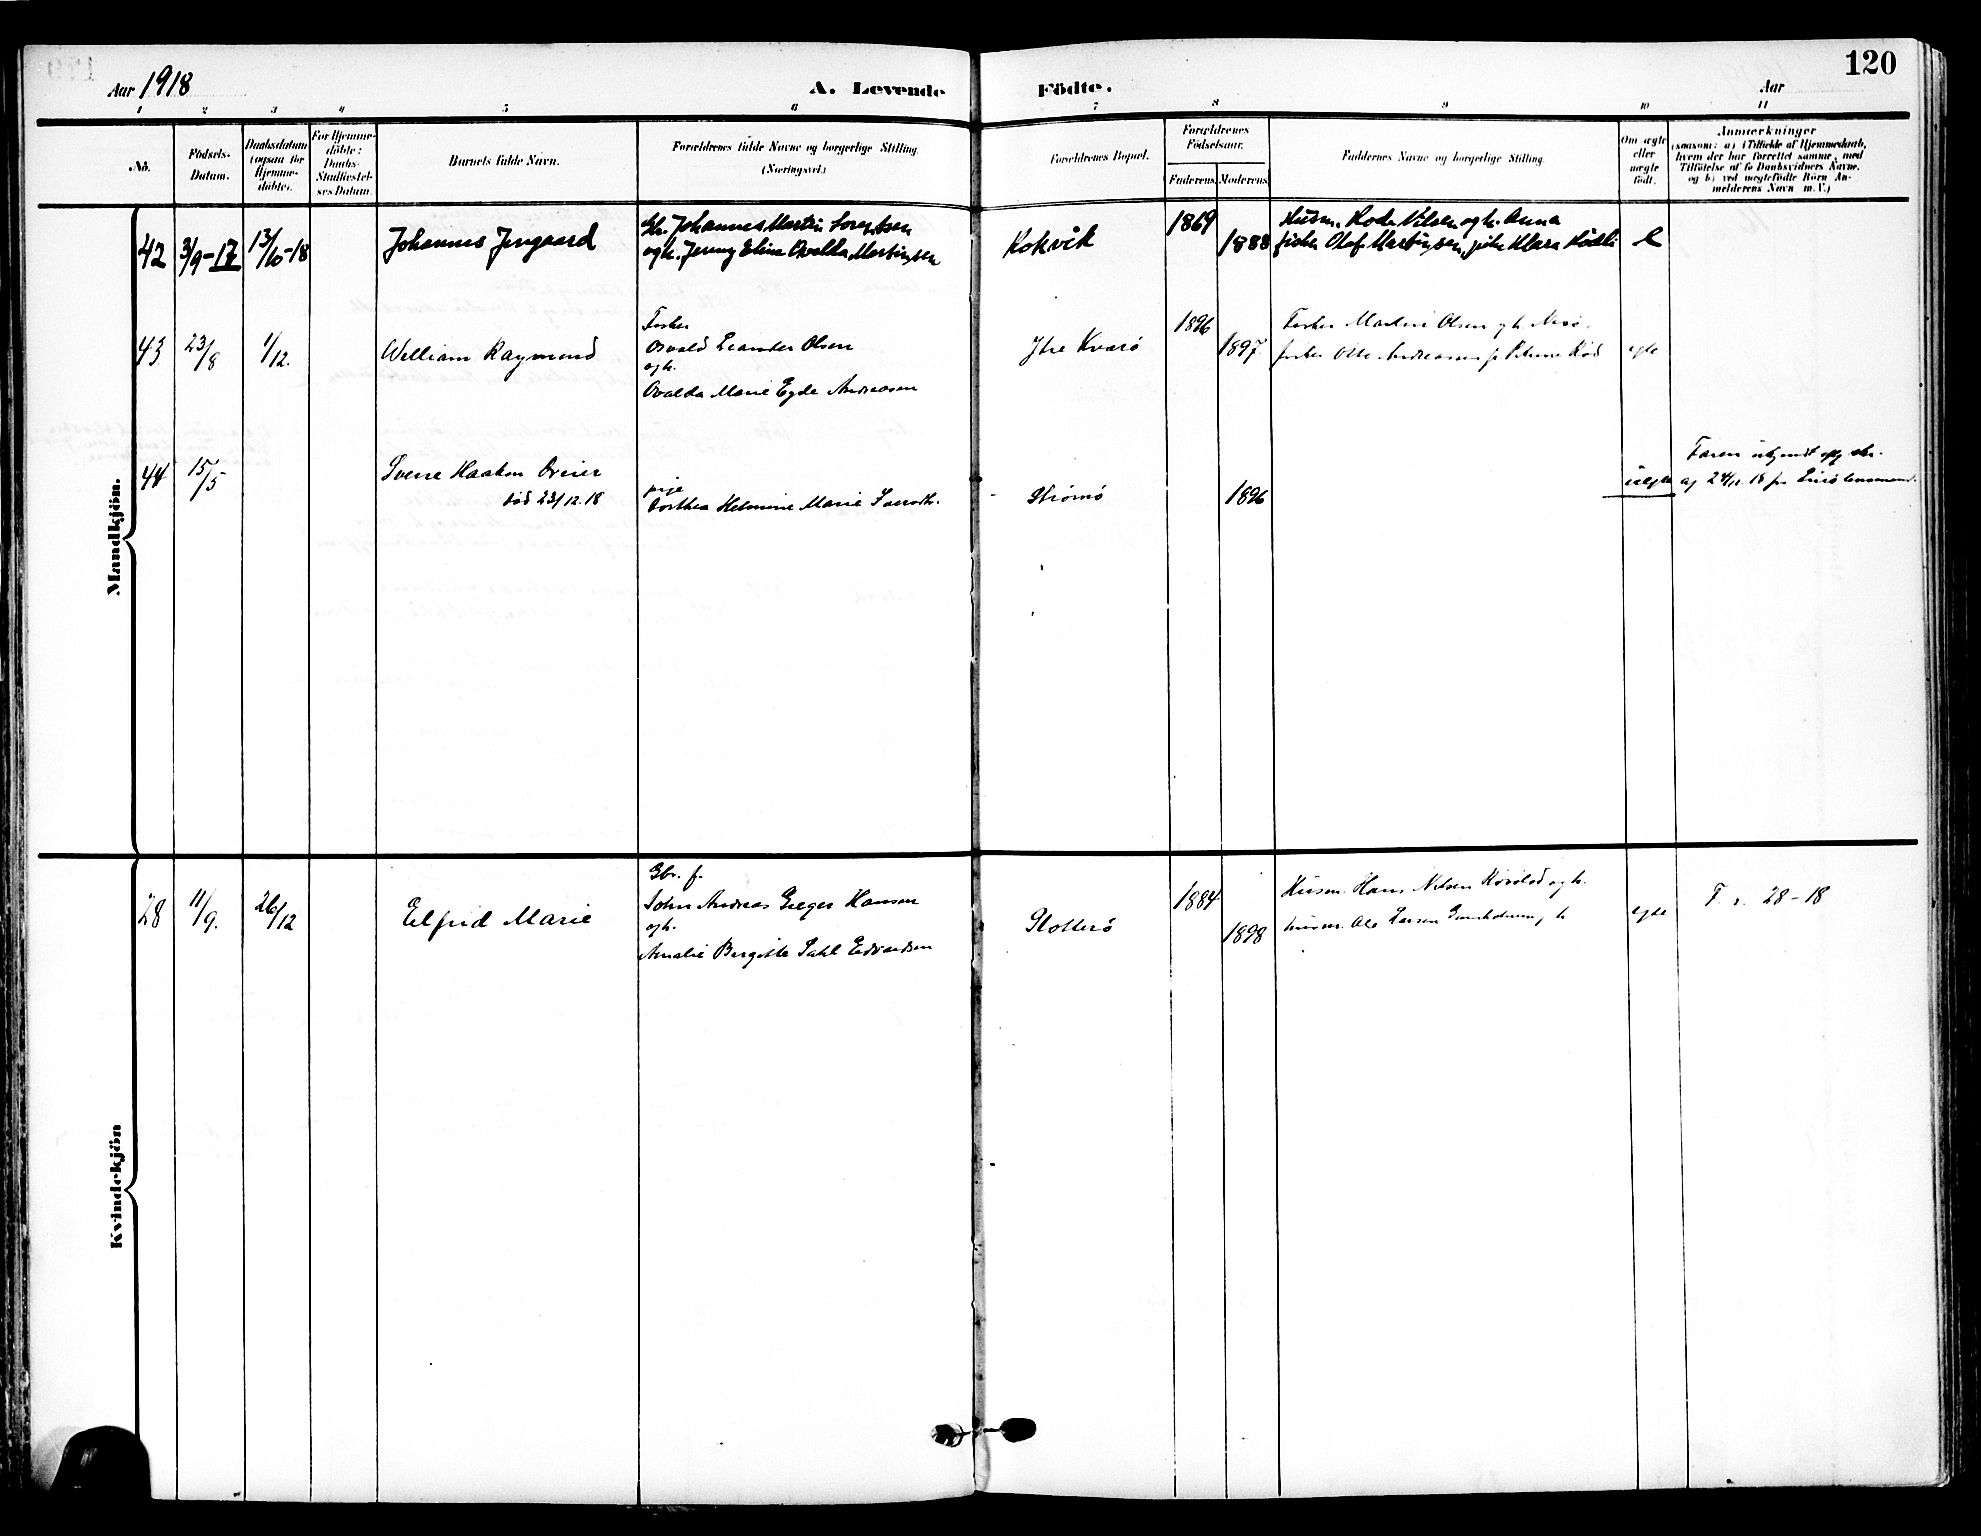 120
Aar 1918
A. Levende Födte.
Aar
1 2 3 4 5 6 7 8 9 10 11
No.
Födsels-
Datum.
Daabsdatum
(ogsaa for
Hjemme-
döbte).
For Hjemme-
döbte:
Daabs-
Stadfæstel-
ses Datum.
Barnets fulde Navn.
Forældrenes fulde Navne og borgerlige Stilling.
(Næringsvei.)
Forældrenes Bopæl.
Forældrenes
Födselsaar.
Faderens. Moderens.
Faddernes Navne og borgerlige Stilling.
Om ægte
eller
uægte
födt.
Anmærkninger
(saasom: a) i Tilfælde af Hjemmedaab,
hvem der har forrettet samme, med
Tilföielse af to Daabsvidners Navne,
og b) ved uægtefödte Börn An-
melderens Navn m. V.)
Mandkjön.
42
3/9-17
13/10-18
Johannes Jengaard
Johannes Martin
ogh. Jenny Eline Ovalda Martinsen
Kokvik
1869
1888
Husm. Nilsen ogh. Anna
fisker Olaf Martinsen, Klara
e
43
23/8
1/12.
William Raymond
Fisker
Osvald Leander Olsen
ogh.
Ovalda Marie Egda Andreasen
Ytre Kvarø
1896
1897
Fisker Martin Olsen ogh.
fisker Otto Andreassen
egte
44
15/5
Sverre Haakon
død 23/12.18
pige
Dorthea Helmine Marie
Strømø
1896
uegte
Faren
Kvindekjön
28
11/9.
26/12
Elfrid Marie
Gbr. f.
John Andreas Greger Hansen
ogh.
Amalie Birgitte Dahl Edvardsen
Slotterø
1884
1898
Husm. Hans Nilsen ogh.
husm. Ole Larsen
egte
F. 28-18